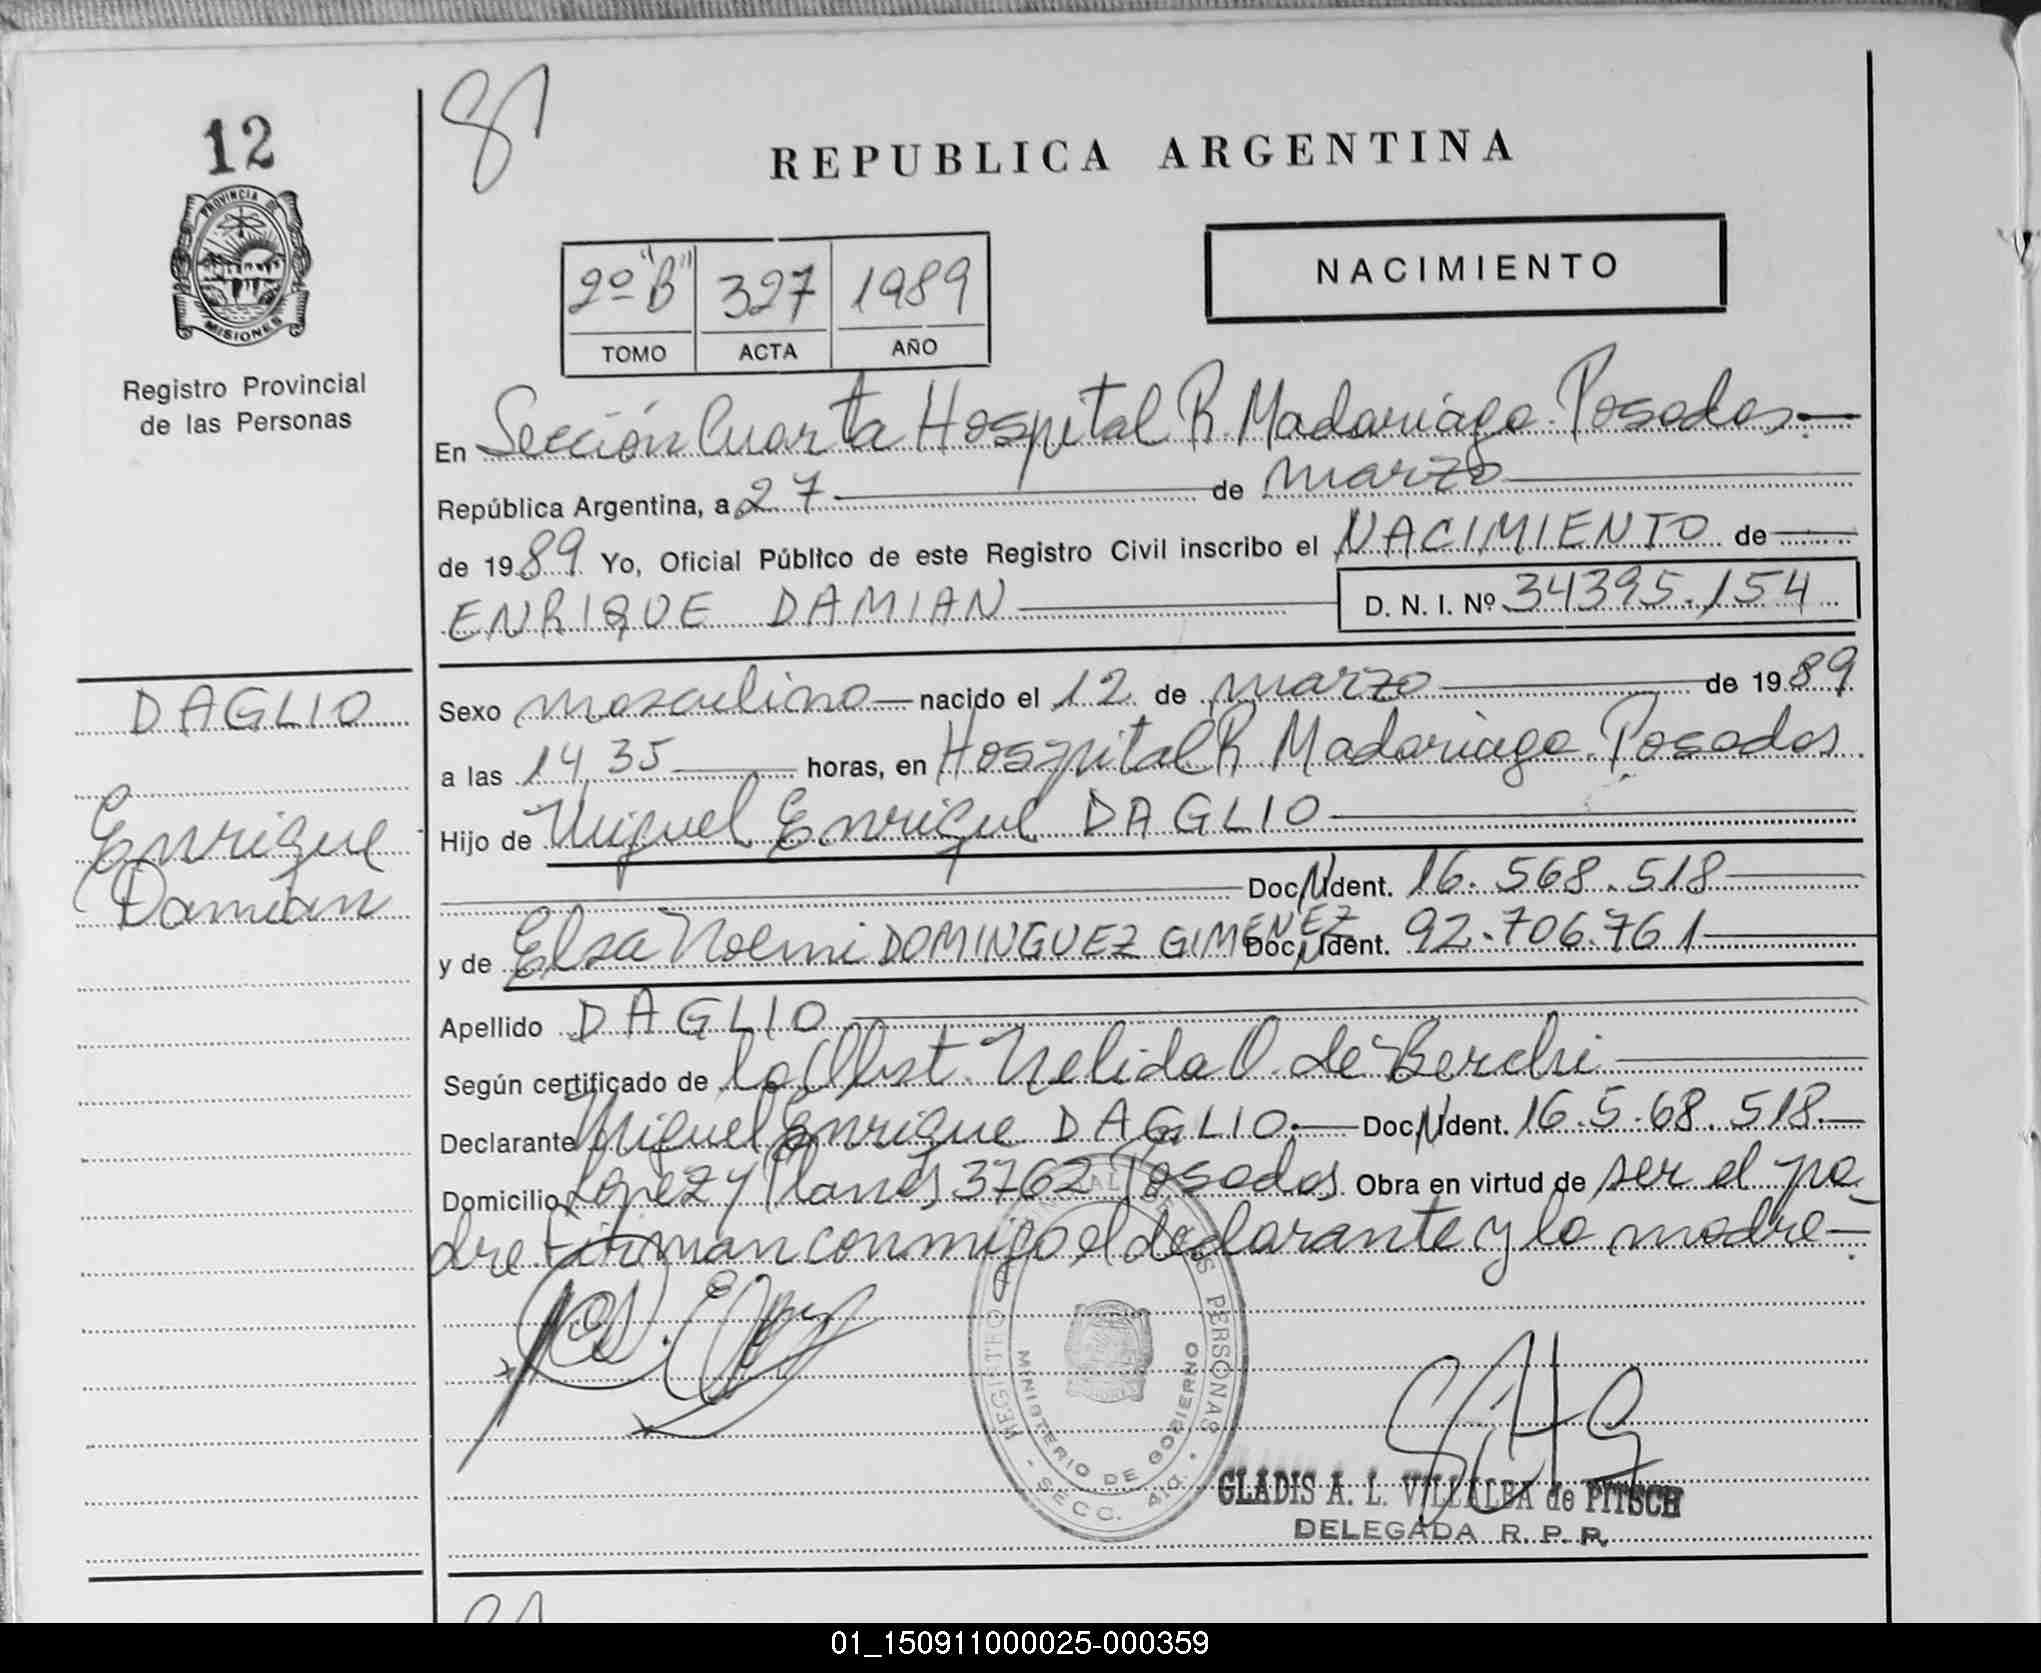 12
PROVINCIA DE
MISIONES
Registro Provincial
de las Personas
REPUBLICA ARGENTINA
NACIMIENTO
2º "B" 327 1989
TOMO ACTA AÑO
En Sección Cuarta Hospital R. Madariaga. Posadas.
República Argentina, a 27 de marzo
de 1989 Yo, Oficial Público de este Registro Civil inscribo el NACIMIENTO de
ENRIQUE DAMIAN D. N. I. Nº 34395.154
DAGLIO
Enrique
Damian
Sexo masculino nacido el 12 de marzo de 1989
a las 14,35 horas, en Hospital R Madariaga. Posadas.
Hijo de Miguel Enrique DAGLIO
Doc. N. Ident. 16.568.518
y de Elsa Noemi DOMINGUEZ GIMENEZ Doc. N. Ident. 92.706.761
Apellido DAGLIO
Según certificado de la Obst. Nelida O. de Berchi
Declarante Miguel Enrique DAGLIO. Doc. N. Ident. 16.5.68.518.
Domicilio Lopez y Planes 3762 Posadas. Obra en virtud de ser el pa-
dre. Firman conmigo, el declarante y la madre.
REGISTRO PROVINCIAL DE LAS PERSONAS
MINISTERIO DE GOBIERNO
SECC. 4ta.
GLADIS A. L. VILLALBA de PITSCH
DELEGADA R. P. P.
01_150911000025-000359